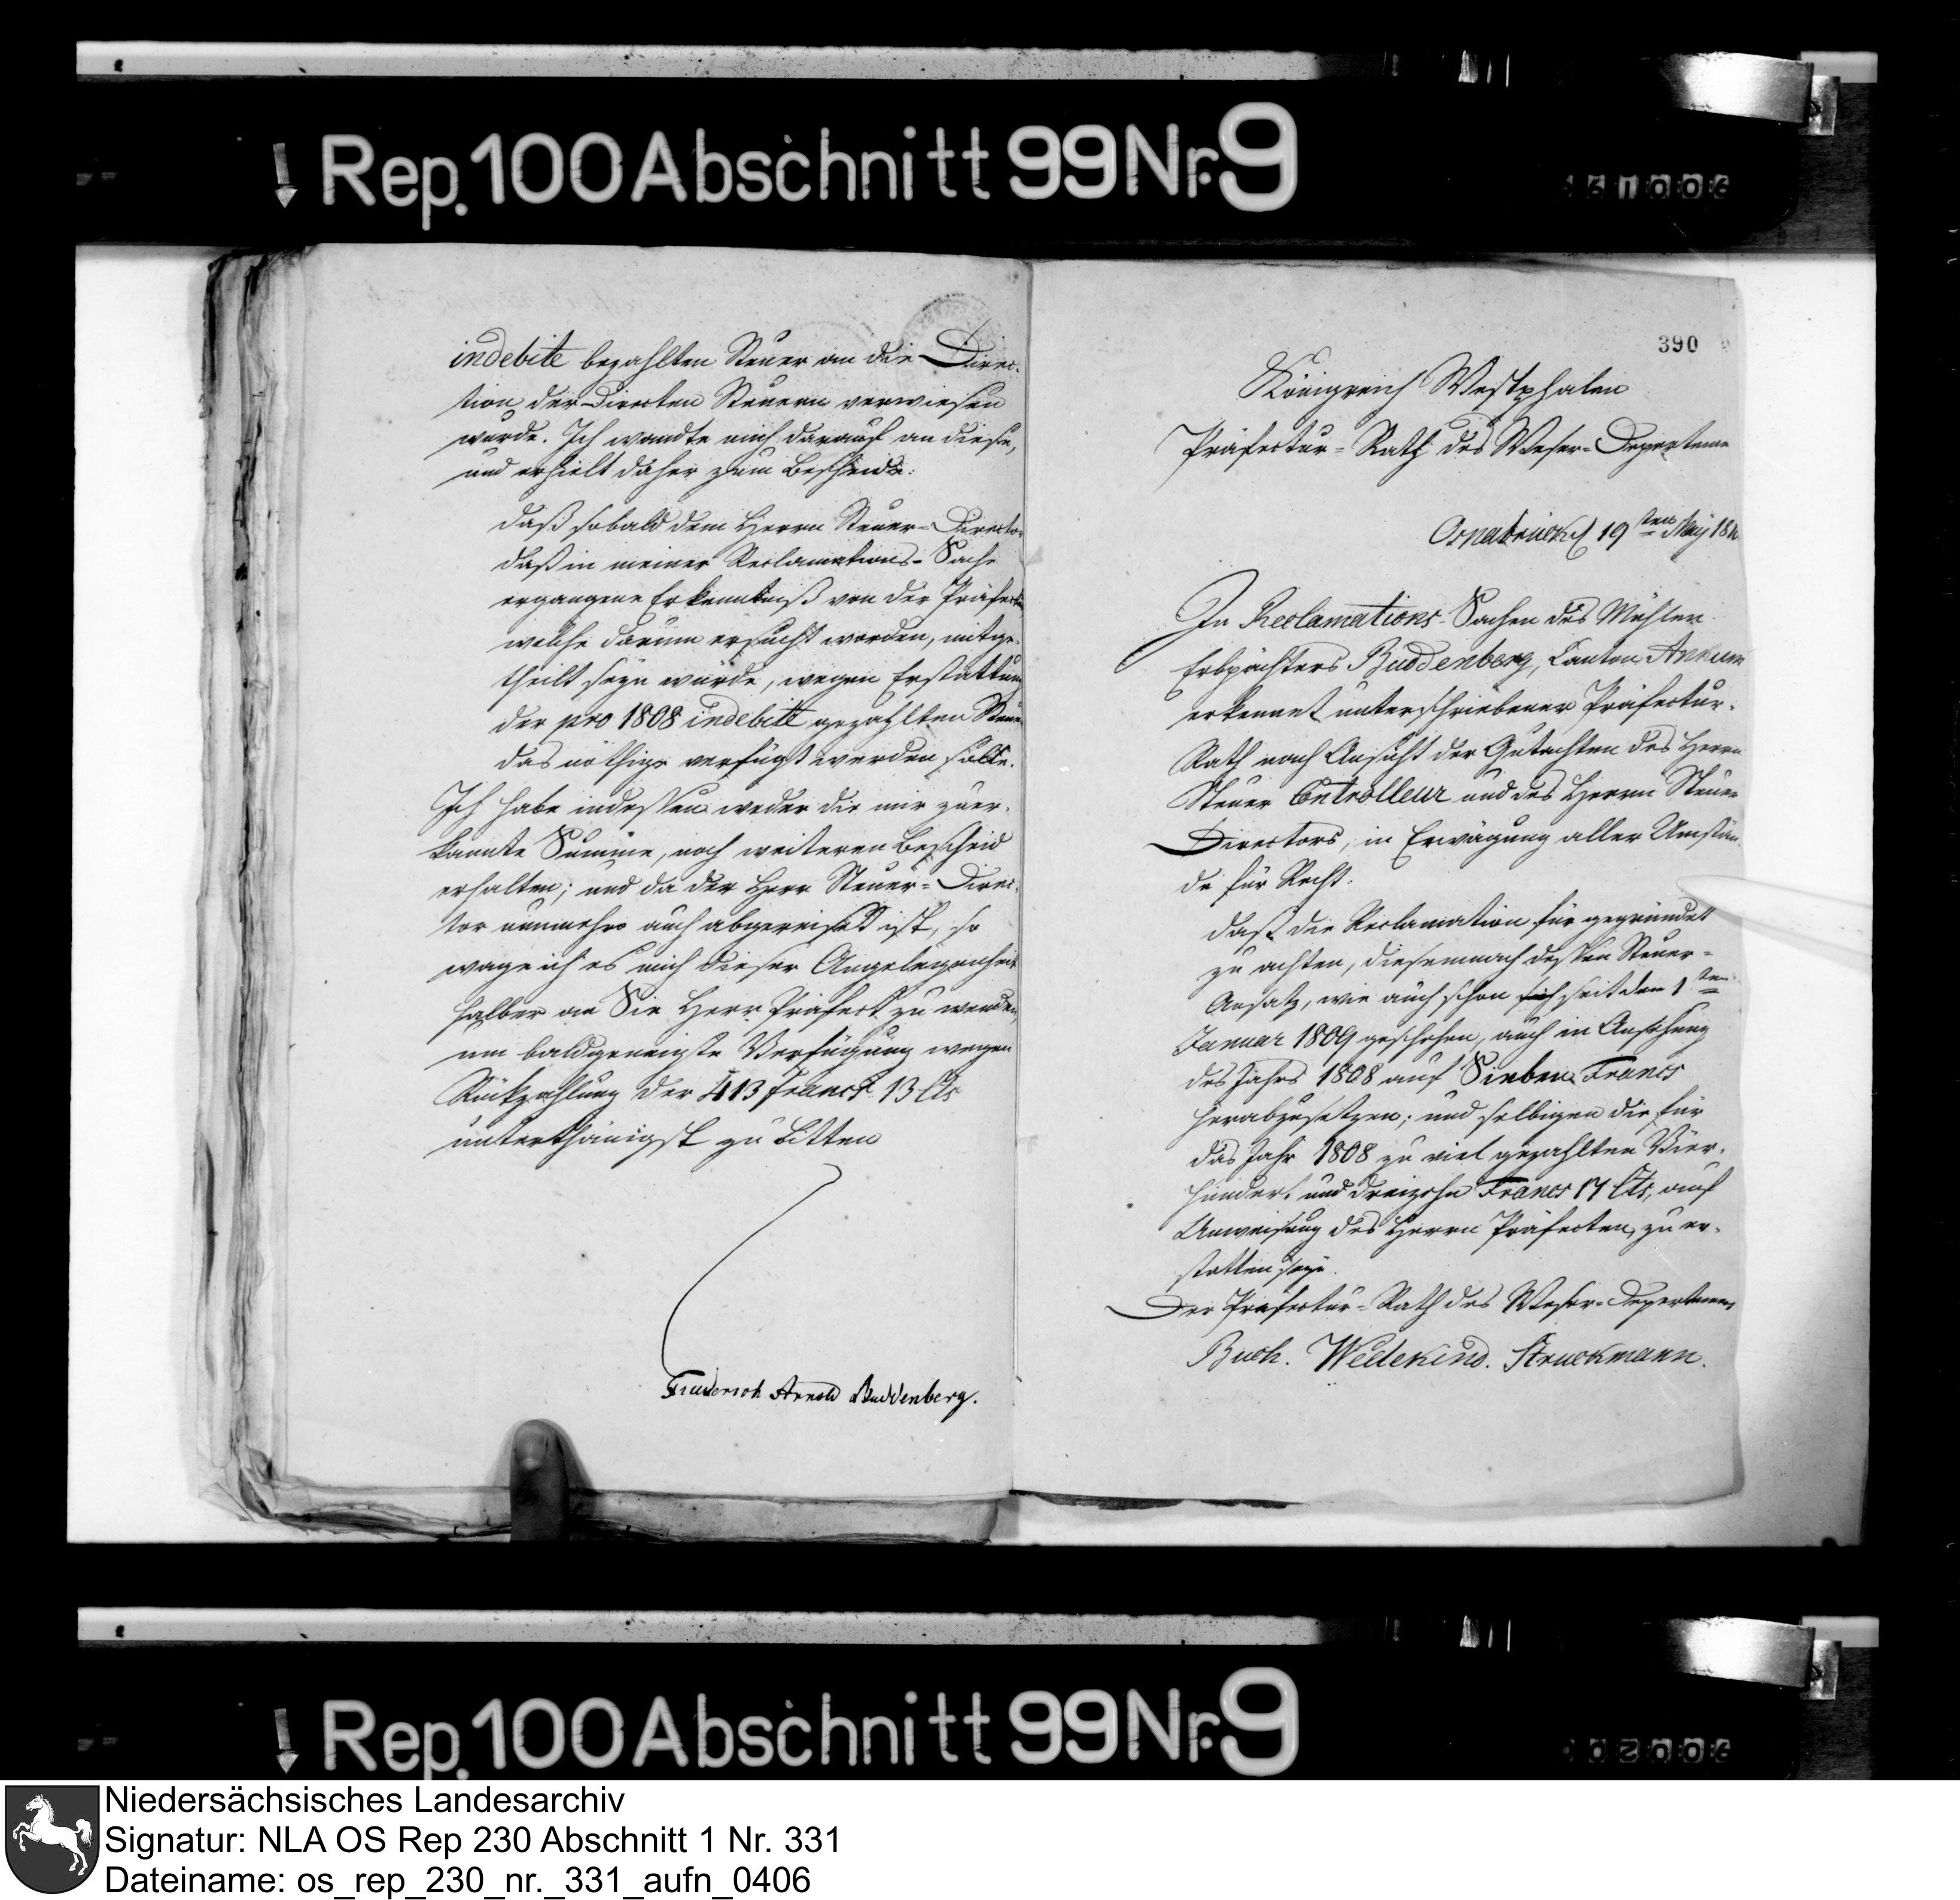 Rep. 100 Abschnitt 99 Nr. 9
indebite bezahlten Steuer an die Direc-
tion der Directen Steuern verwiesen
wurde. Ich wandte mich darauf an diese,
und erhielt daher zum Bescheide:
daß sobald dem Herrn Steuer-Director
daß in meiner Reclamations-Sache
ergangene Erkenntniß von der Präfectur
welche darum ersucht worden, mitge-
theilt seyn würde, wegen Erstattung
der pro 1808 indebite gezahlten Steuer
das nöthige verfügt werden solle.
Ich habe indessen weder die mir zuer-
kannte Summe, noch weiteren Bescheid
erhalten; und da der Herr Steuer-Direc-
tor nunmehro auch abgereiset ist, so
wage ich es mich dieser Angelegenheit
halber an Sie Herr Präfect zu wenden,
um baldgeneigte Verfügung wegen
Rückzahlung der 413 Francs 13 Cts
unterthänigst zu bitten
Friederich Arnold Buddenberg.
390
Königreich Westphalen
Präfectur-Rath des Weser-Departemen
Osnabrück d 19ten May 18
In Reclamations-Sachen des Mühlen
Erbpächters Buddenberg, Canton Ankum
erkennet unterschriebener Präfectur-
Rath nach Ansicht der Gutachten des Herrn
Steuer Controlleur und des Herrn Steuer
Directors, in Erwägung aller Umstän-
de für Recht:
daß die Reclamation für gegründet
zu achten, diesemnach dessen Steuer-
Ansatz, wie auch schon seit dem 1ten
Januar 1809 geschehen, auch in Ansehung
des Jahrs 1808 auf Sieben Francs
herabzusetzen; und selbigen die für
das Jahr 1808 zu viel gezahlten Vier-
hundert und dreizehn Francs 17 Cts, auf
Anweisung des Herrn Präfecten, zu er-
statten seye.
Der Präfectur-Rath des Weser-Departemens
Buch. Wedekind. Struckmann.
Rep. 100 Abschnitt 99 Nr. 9
Niedersächsisches Landesarchiv
Signatur: NLA OS Rep 230 Abschnitt 1 Nr. 331
Dateiname: os_rep_230_nr._331_aufn_0406